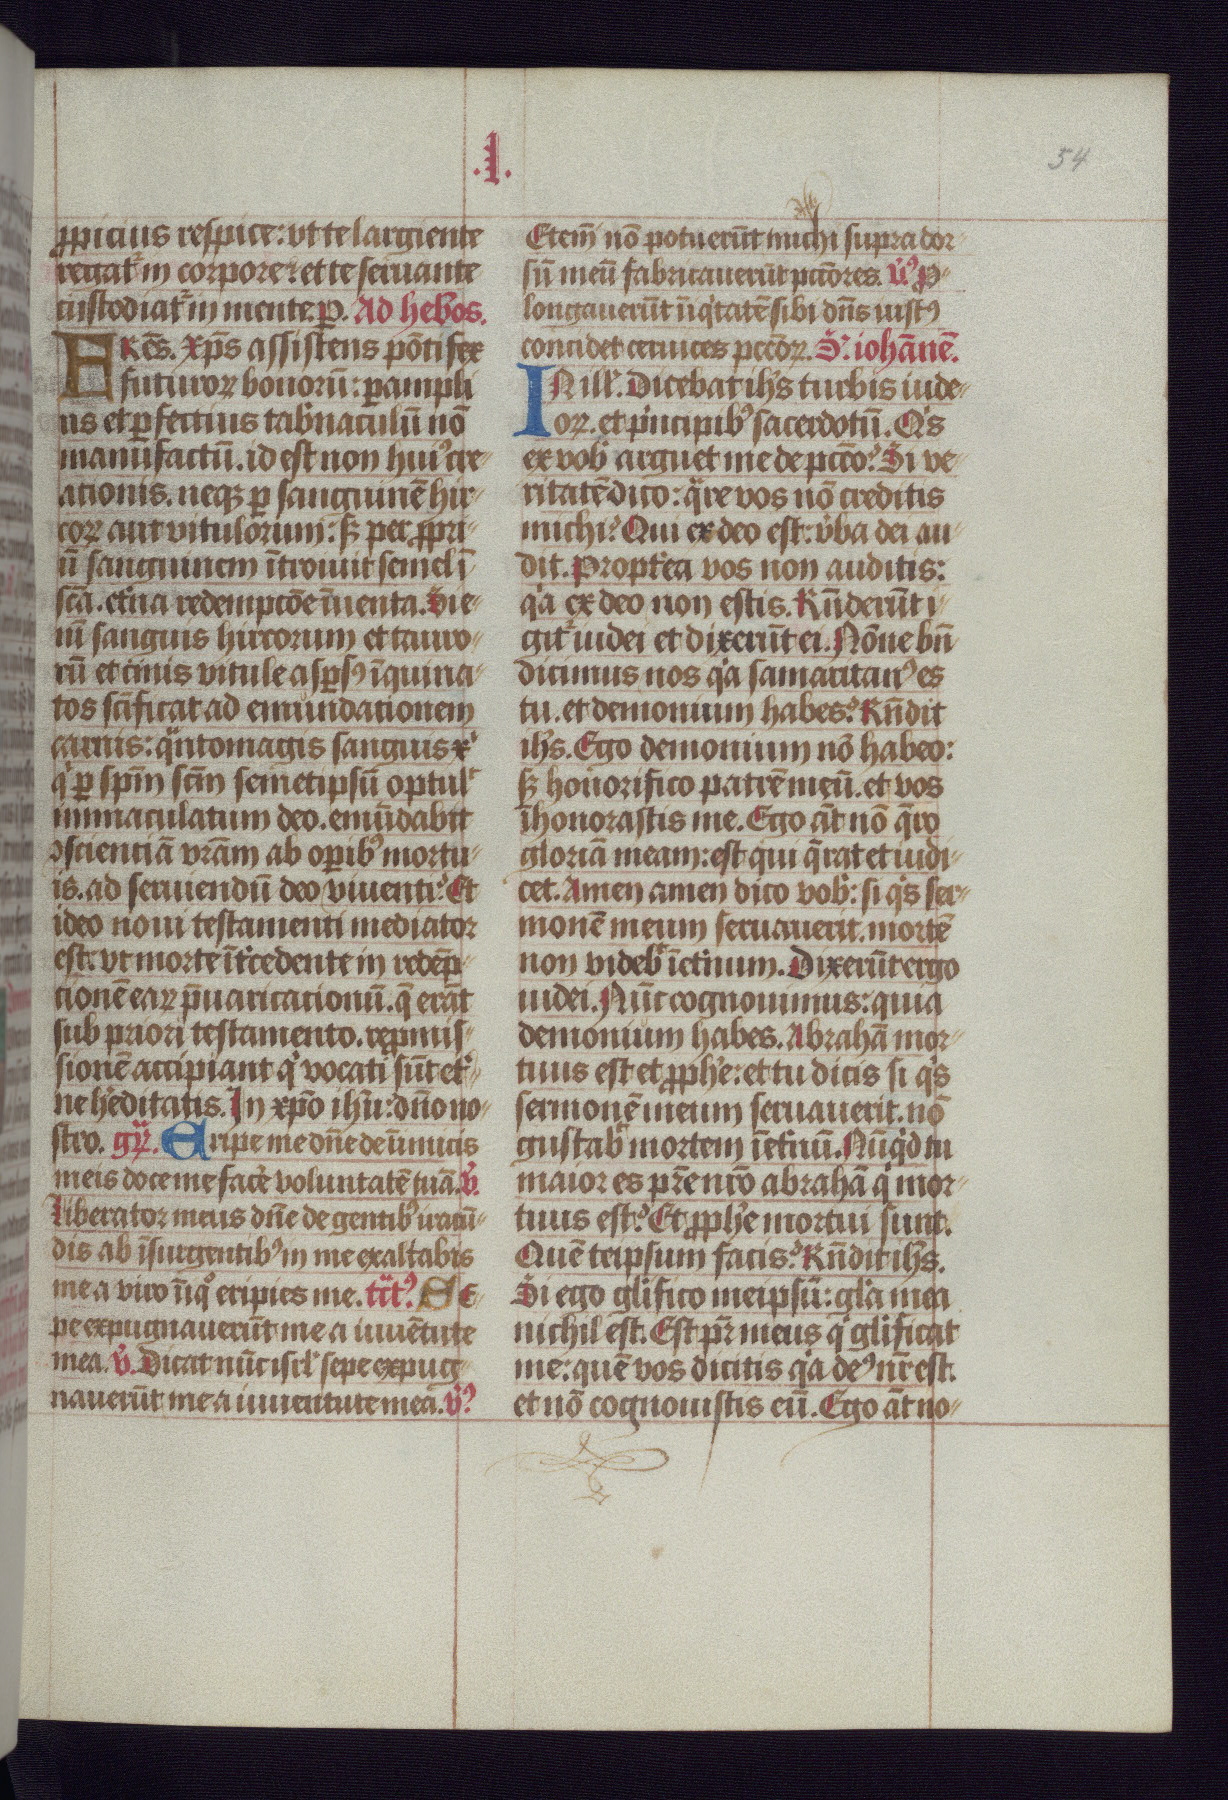 .l.
54
ꝓpicius respice: vt te largiente
regat᷑ in corpore: et te seruante
custodiat᷑ in mente. ꝑ. Ad hebos.
FRēs. Xp̄s assistens pōtifex
futuroꝝ bonorū: ꝑ ampli
us et ꝑfectius tab̄naculū nō
manufactū. id est non huiꝰ cre-
ationis. neqꝫ ꝑ sanguinē hir-
coꝝ aut vitulorum: sꝫ per ꝓpri-
ū sanguinem ītroiuit semel ī
scā. et̄na redempcōe īuenta. Si e-
nī sanguis hircorum et tauro-
rū et cinis vitule asꝑsꝰ īquina-
tos sc̄ificat ad emundationem
carnis: qͣntomagis sanguis xͥ
qͥ ꝑ sp̄m sc̄m semetipsū optulͭ
immaculatum deo. emūdabit
ꝯscienciā vr̄am ab oꝑibꝰ mortu-
is. ad seruiendū deo viuenti? Et
ideo noui testamenti mediator
est. vt morte īt̄cedente in redēp-
tionē eaꝝ p̄uaricationū. q̄ erāt
sub priori testamento. reꝓmis-
sionē accipiant qͥ vocati sūt et̄-
ne h̄editatis. In xp̄o ihū: dn̄o no-
stro. gr̄. Eripe me dn̄e de īimicis
meis doce me facē voluntatē tuā. v̄.
Liberator meus dn̄e de gentibꝰ iracū-
dis ab īsurgentibꝰ in me exaltabis
me a viro īiqͦ eripies me. tct̄ꝰ. Se-
pe expugnauerūt me a iuuētute
mea. v̄. Dicat nūc isrl̄ sepe expug-
nauerūt me a iuuentute mea. v̄ꝰ
Etem̄ nō potuerūt michi supra dor-
sū meū fabricauerūt pctōres. v̄ꝰ ꝓ-
longauerūt īiqͥtatē sibi dn̄s iustꝰ
concidet ceruices pccōꝝ. S. iohānē.
IN ill̄. Dicebat ihs̄ turbis iude-
oꝝ. et pͥncipibꝰ sacerdotū. Qͥs
ex vob̄ arguet me de pccō? Si ve-
ritatē dico: qͣre vos nō creditis
michi? Qui ex deo est: v̄ba dei au-
dit. Propt̄ea vos non auditis:
qͥa ex deo non estis. Rn̄derūt i-
git᷑ iudei et dixerūt ei. Nōne bn̄
dicimus nos qͥa samaritanꝰ es
tu. et demonium habes? Rn̄dit
ihs̄. Ego demonium nō habeo:
sꝫ honorifico patrē meū. et vos
īhonorastis me. Ego āt nō q̄ro
gloriā meam: est qui q̄rat et iudi-
cet. Amen amen dico vob̄: si qͥs ser-
monē meum seruauerit. mortē
non videbͥ īet̄num. Dixerūt ergo
iudei. Nūc cognouimus: quia
demonium habes. Abrahā mor-
tuus est et ꝓph̄e: et tu dicis si qͥs
sermonē meum seruauerit. nō
gustabͥ mortem īet̄nū. Nūqͥd tu
maior es pr̄e nr̄o abrahā qͥ mor-
tuus est? Et ꝓph̄e mortui sunt.
Quē teipsum facis? Rn̄dit ihs̄.
Si ego gl̄ifico meipsū: gl̄a mea
nichil est. Est pr̄ meus qͥ gl̄ificat
me: quē vos dicitis qͥa deꝰ nr̄ est.
et nō cognouistis eū. Ego āt no-